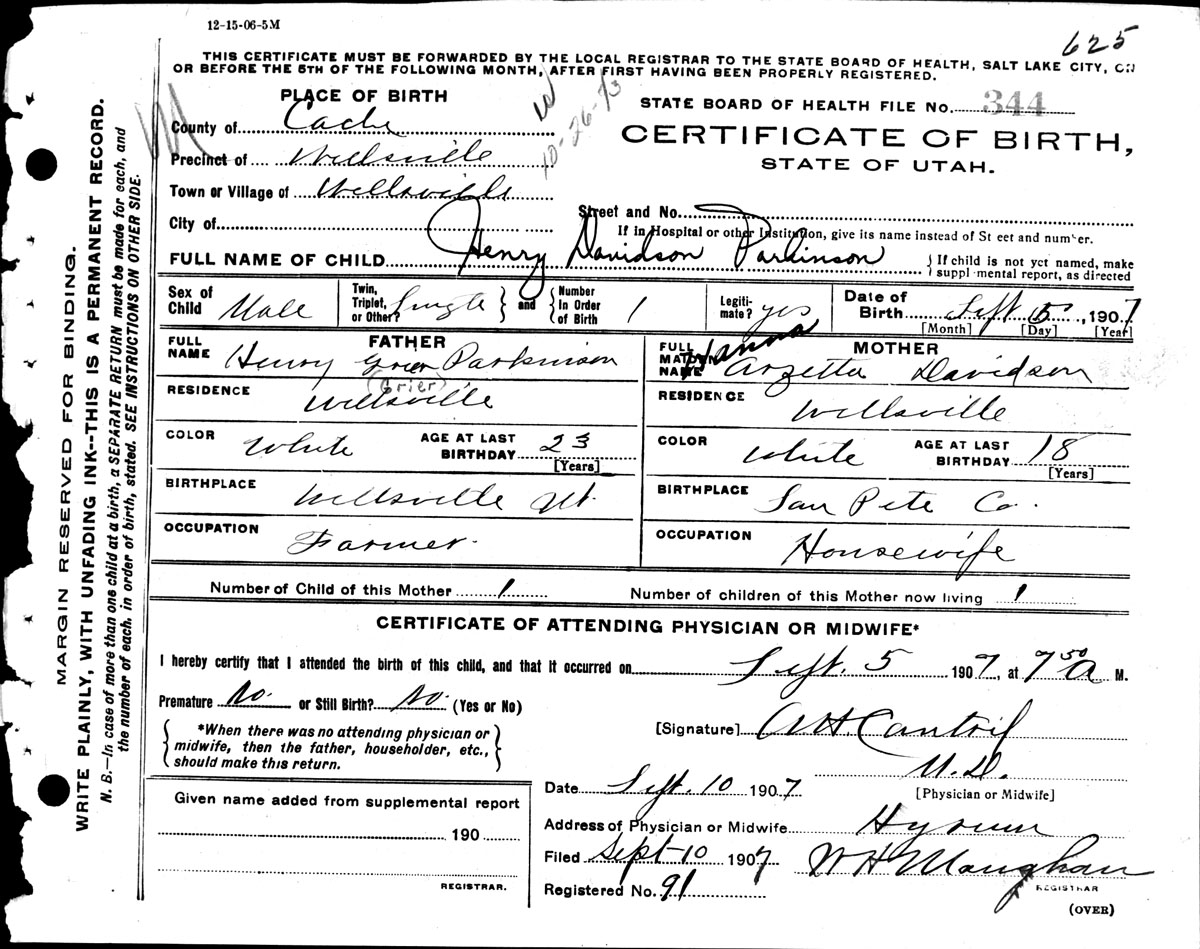 12-15-06-5M
625
THIS CERTIFICATE MUST BE FORWARDED BY THE LOCAL REGISTRAR TO THE STATE BOARD OF HEALTH, SALT LAKE CITY, ON
OR BEFORE THE 5TH OF THE FOLLOWING MONTH, AFTER FIRST HAVING BEEN PROPERLY REGISTERED.
PLACE OF BIRTH
STATE BOARD OF HEALTH FILE No. 344
County of Cache
10-26-73
CERTIFICATE OF BIRTH,
STATE OF UTAH.
Precinct of Wellsville
Town or Village of Wellsville
City of
Street and No.
If in Hospital or other Institution, give its name instead of St eet and number.
FULL NAME OF CHILD Henry Davidson Parkinson
{ If child is not yet named, make
suppl mental report, as directed
Sex of Child Male
Twin, Triplet, or Other? Single } and { Number In Order of Birth 1
Legiti- mate? yes
Date of Birth Sept 5, 1907
[Month] [Day] [Year]
FATHER
FULL NAME Henry Grier Parkinson
(Grier)
RESIDENCE Wellsville
COLOR White AGE AT LAST BIRTHDAY 23
[Years]
BIRTHPLACE Wellsville Ut
OCCUPATION Farmer
MOTHER
FULL MAIDEN NAME Arzetta Davidson
RESIDENCE Wellsville
COLOR White AGE AT LAST BIRTHDAY 18
[Years]
BIRTHPLACE San Pete Co.
OCCUPATION Housewife
Number of Child of this Mother 1 Number of children of this Mother now living 1
CERTIFICATE OF ATTENDING PHYSICIAN OR MIDWIFE*
I hereby certify that I attended the birth of this child, and that it occurred on Sept. 5 1907, at 7 50 A M.
Premature No. or Still Birth? No. (Yes or No)
{ *When there was no attending physician or
midwife, then the father, householder, etc.,
should make this return. }
[Signature] A H Cantril
M.D.
[Physician or Midwife]
Date Sept. 10 1907
Address of Physician or Midwife Hyrum
Filed Sept 10 1907 W H Maughan
REGISTRAR
Registered No. 91
(OVER)
Given name added from supplemental report
190
REGISTRAR.
MARGIN RESERVED FOR BINDING.
WRITE PLAINLY, WITH UNFADING INK--THIS IS A PERMANENT RECORD.
N. B.—In case of more than one child at a birth, a SEPARATE RETURN must be made for each, and
the number of each, in order of birth, stated. SEE INSTRUCTIONS ON OTHER SIDE.